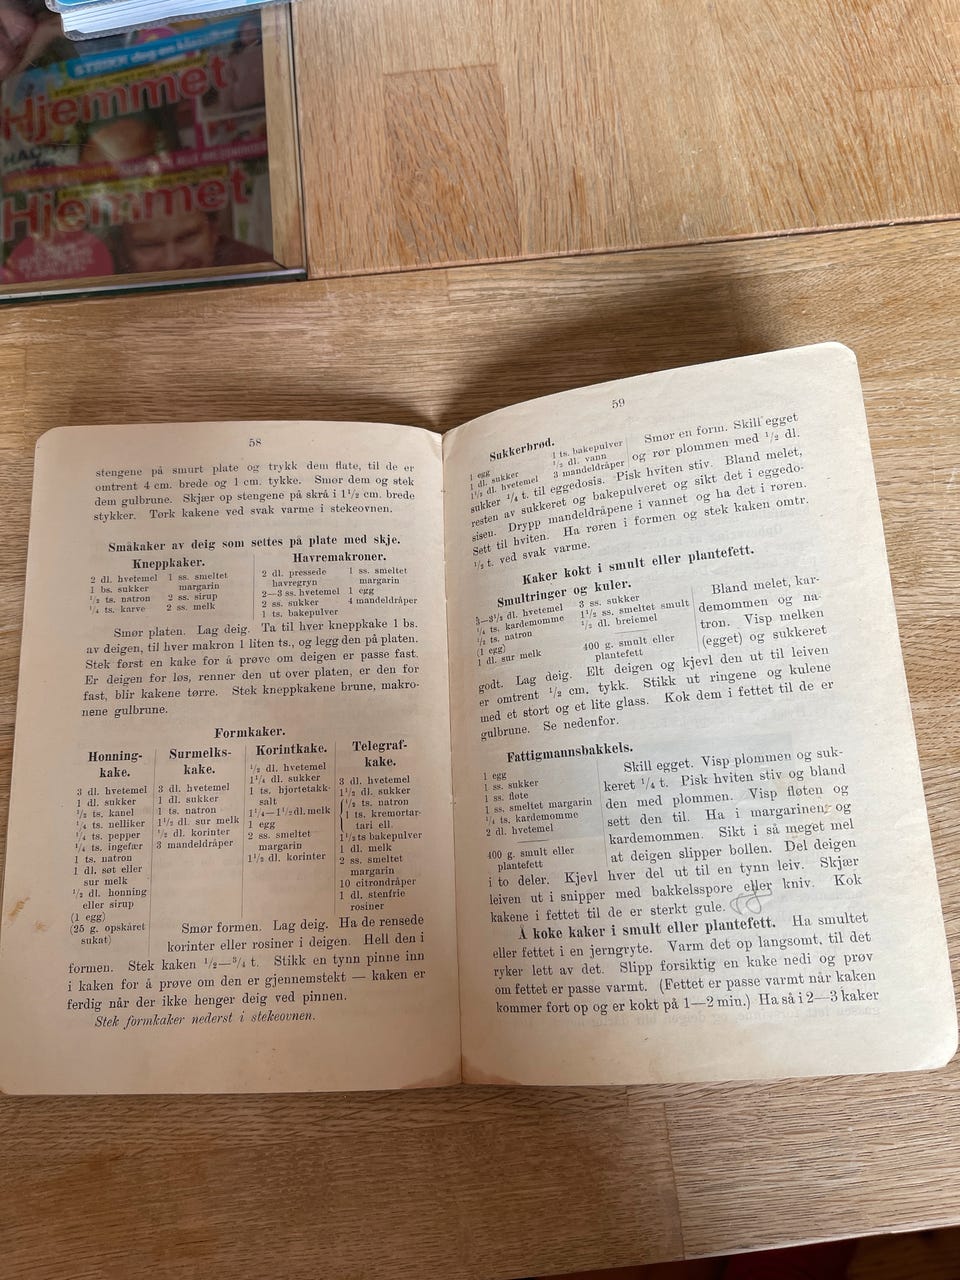 STRIKK deg en klassiker
Hjemmet
Hjemmet
58
stengene på smurt plate og trykk dem flate, til de er
omtrent 4 cm. brede og 1 cm. tykke. Smør dem og stek
dem gulbrune. Skjær op stengene på skrå i 1½ cm. brede
stykker. Tørk kakene ved svak varme i stekeovnen.
Småkaker av deig som settes på plate med skje.
Kneppkaker.
2 dl. hvetemel
1 bs. sukker
½ ts. natron
¼ ts. karve
1 ss. smeltet
margarin
2 ss. sirup
2 ss. melk
Havremakroner.
2 dl. pressede
havregryn
2—3 ss. hvetemel
2 ss. sukker
1 ts. bakepulver
1 ss. smeltet
margarin
1 egg
4 mandeldråper
Smør platen. Lag deig. Ta til hver kneppkake 1 bs.
av deigen, til hver makron 1 liten ts., og legg den på platen.
Stek først en kake for å prøve om deigen er passe fast.
Er deigen for løs, renner den ut over platen, er den for
fast, blir kakene tørre. Stek kneppkakene brune, makro-
nene gulbrune.
Formkaker.
Honning-
kake.
3 dl. hvetemel
1 dl. sukker
½ ts. kanel
¼ ts. nelliker
¼ ts. pepper
¼ ts. ingefær
1 ts. natron
1 dl. søt eller
sur melk
½ dl. honning
eller sirup
(1 egg)
(25 g. opskåret
sukat)
Surmelks-
kake.
3 dl. hvetemel
1 dl. sukker
1 ts. natron
1½ dl. sur melk
½ dl. korinter
3 mandeldråper
Korintkake.
½ dl. hvetemel
1¼ dl. sukker
1 ts. hjortetakk-
salt
1¼—1½ dl. melk
1 egg
2 ss. smeltet
margarin
1½ dl. korinter
Telegraf-
kake.
3 dl. hvetemel
1½ dl. sukker
½ ts. natron
1 ts. kremortar-
tari ell.
1½ ts bakepulver
1 dl. melk
2 ss. smeltet
margarin
10 citrondråper
1 dl. stenfrie
rosiner
Smør formen. Lag deig. Ha de rensede
korinter eller rosiner i deigen. Hell den i
formen. Stek kaken ½—¾ t. Stikk en tynn pinne inn
i kaken for å prøve om den er gjennemstekt — kaken er
ferdig når der ikke henger deig ved pinnen.
Stek formkaker nederst i stekeovnen.
59
Sukkerbrød.
1 egg
1 dl. sukker
1½ dl. hvetemel
1 ts. bakepulver
½ dl. vann
3 mandeldråper
Smør en form. Skill egget
og rør plommen med ½ dl.
sukker ¼ t. til eggedosis. Pisk hviten stiv. Bland melet,
resten av sukkeret og bakepulveret og sikt det i eggedo-
sisen. Drypp mandeldråpene i vannet og ha det i røren.
Sett til hviten. Ha røren i formen og stek kaken omtr.
½ t. ved svak varme.
Kaker kokt i smult eller plantefett.
Smultringer og kuler.
3—3½ dl. hvetemel
¼ ts. kardemomme
½ ts. natron
(1 egg)
1 dl. sur melk
3 ss. sukker
1½ ss. smeltet smult
½ dl. breiemel
400 g. smult eller
plantefett
Bland melet, kar-
demommen og na-
tron. Visp melken
(egget) og sukkeret
godt. Lag deig. Elt deigen og kjevl den ut til leiven
er omtrent ½ cm. tykk. Stikk ut ringene og kulene
med et stort og et lite glass. Kok dem i fettet til de er
gulbrune. Se nedenfor.
Fattigmannsbakkels.
1 egg
1 ss. sukker
1 ss. fløte
1 ss. smeltet margarin
¼ ts. kardemomme
2 dl. hvetemel
400 g. smult eller
plantefett
Skill egget. Visp plommen og suk-
keret ¼ t. Pisk hviten stiv og bland
den med plommen. Visp fløten og
sett den til. Ha i margarinen og
kardemommen. Sikt i så meget mel
at deigen slipper bollen. Del deigen
i to deler. Kjevl hver del ut til en tynn leiv. Skjær
leiven ut i snipper med bakkelsspore eller kniv. Kok
kakene i fettet til de er sterkt gule.
Å koke kaker i smult eller plantefett. Ha smultet
eller fettet i en jerngryte. Varm det op langsomt, til det
ryker lett av det. Slipp forsiktig en kake nedi og prøv
om fettet er passe varmt. (Fettet er passe varmt når kaken
kommer fort op og er kokt på 1—2 min.) Ha så i 2—3 kaker